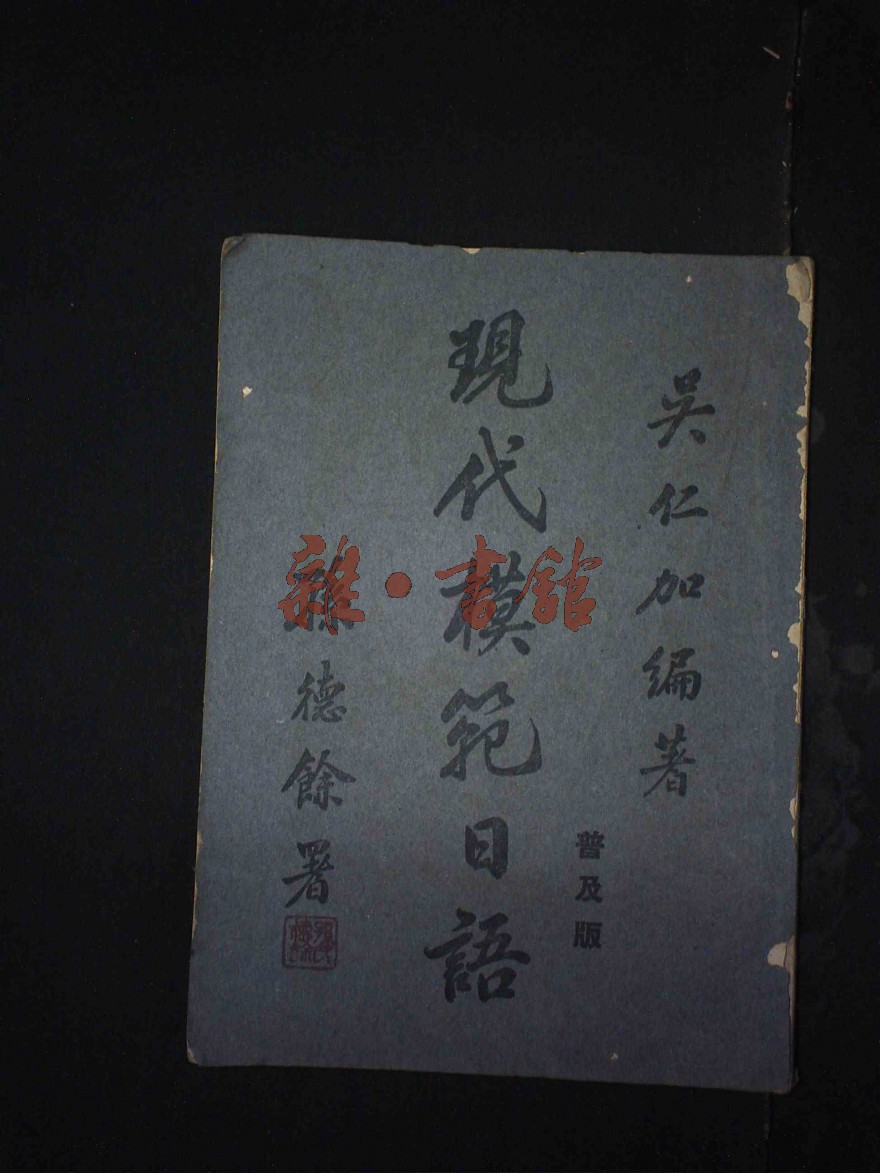 吳仁加編著
普及版
現代模範日語
孫德餘署
雜·書館